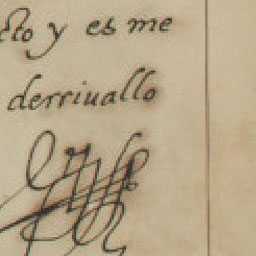 cto y es me
derriuallo